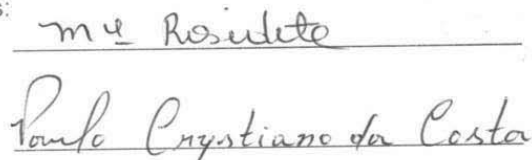 s:
Mª Rosidete
Paulo Crystiano da Costa